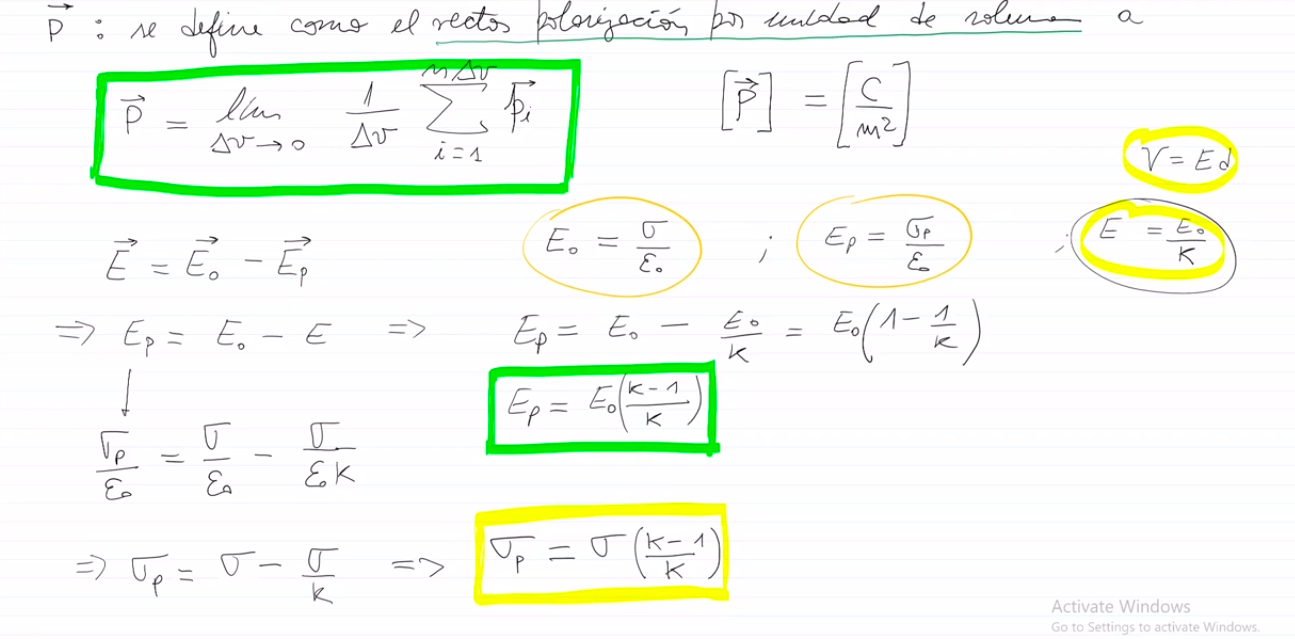 P⃗ : se define como el vector polarización por unidad de volumen a
P⃗ = lim Δv→0 1/Δv ∑ i=1 nΔv p⃗i [P⃗] = [C/m²]
V = Ed
E⃗ = E⃗₀ − E⃗p E₀ = σ/ε₀ ; Ep = σp/ε₀ ; E = E₀/K
⇒ Ep = E₀ − E ⇒ Ep = E₀ − E₀/K = E₀(1 − 1/K)
↓ Ep = E₀((K−1)/K)
σp/ε₀ = σ/ε₀ − σ/ε₀K
⇒ σp = σ − σ/K ⇒ σp = σ((K−1)/K)
Activate Windows
Go to Settings to activate Windows.